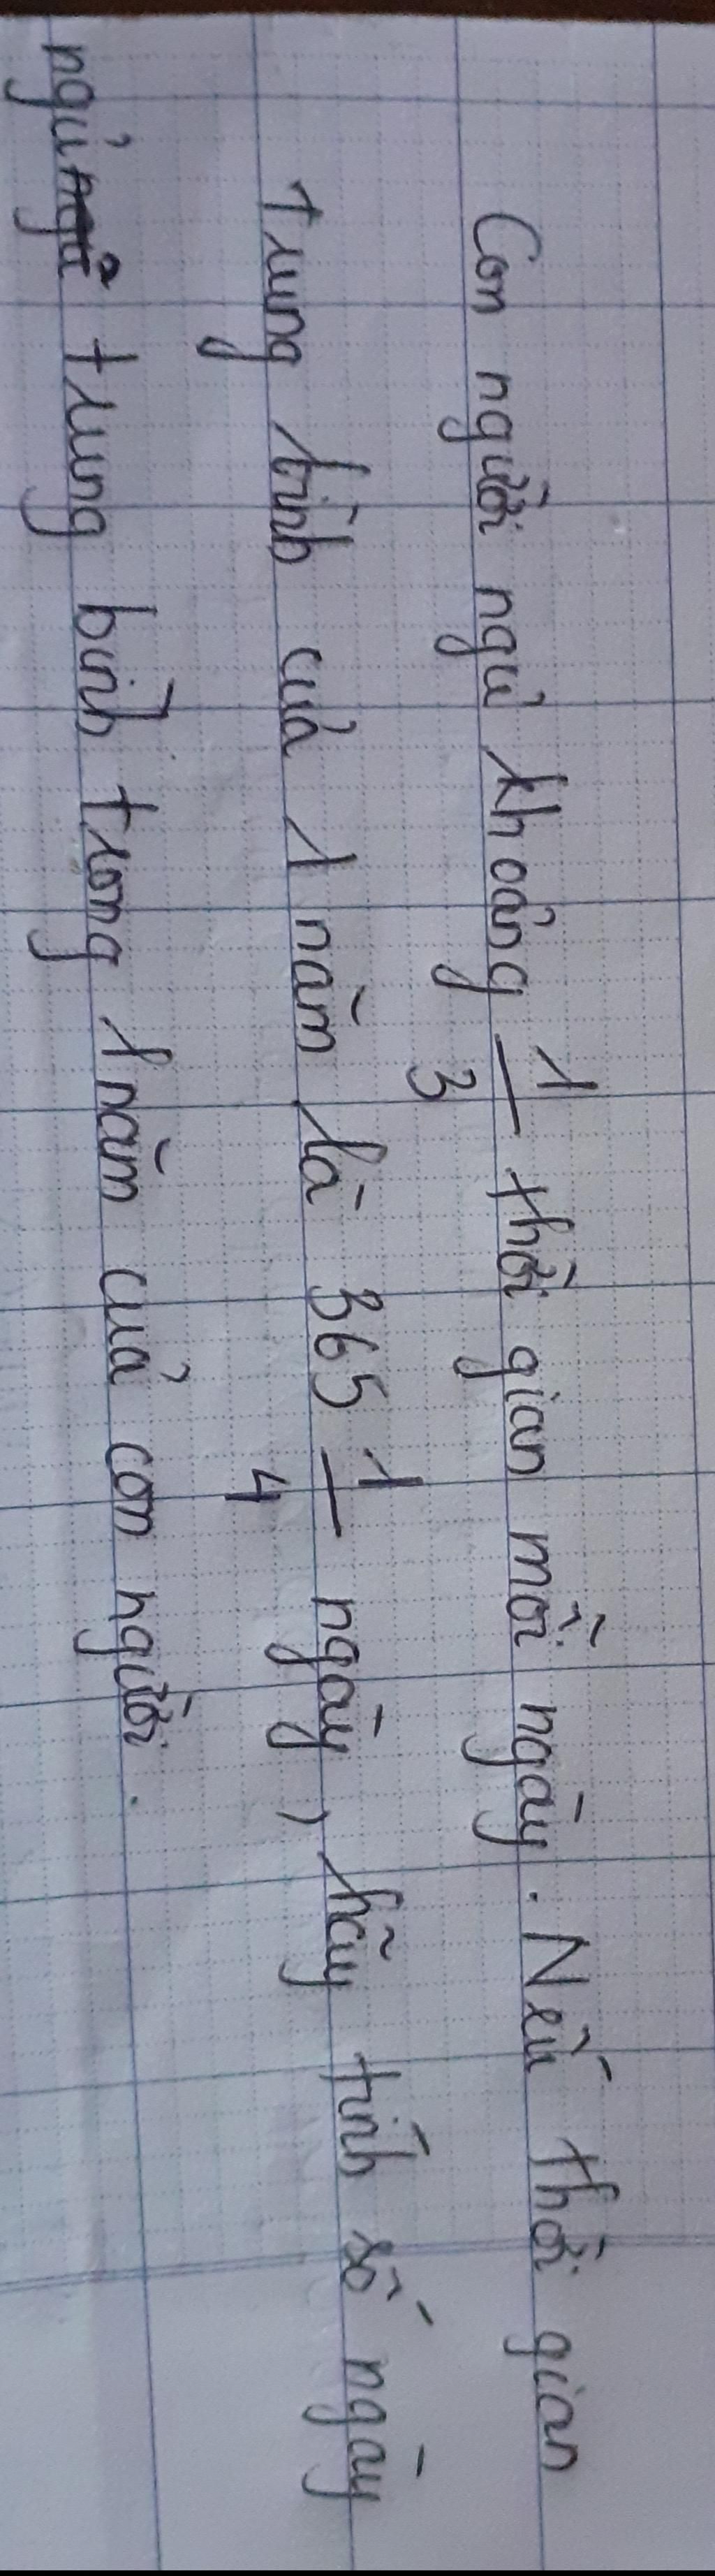 Con người ngủ khoảng 1/3 thời gian mỗi ngày. Nếu thời gian
trung bình của 1 năm là 365 1/4 ngày, hãy tính số ngày
ngủ trung bình trong 1 năm của con người.